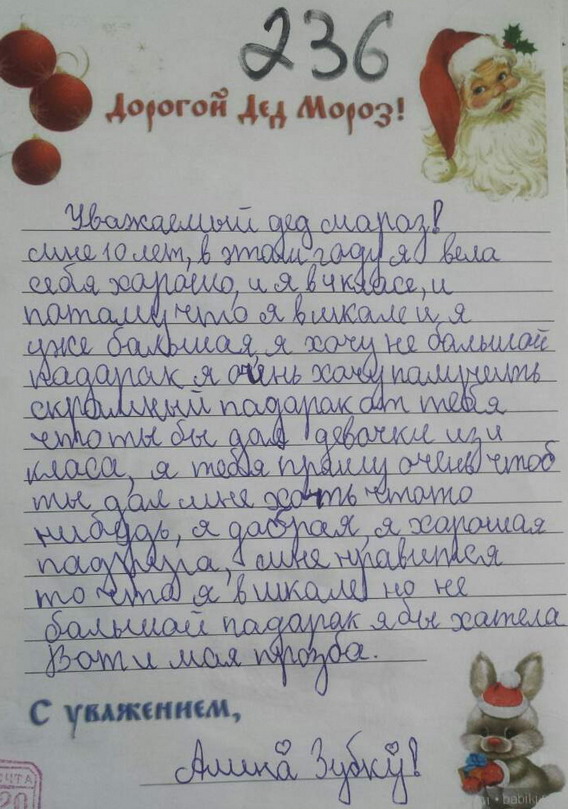 236
Дорогой Дед Мороз!
Уважаемый дед мароз!
мне 10 лет, в этом гаду я вела
себя харашо, и я в 4 класе, и
патамучто я в шкале и я
уже балшая, я хочу не балшой
падарак я очень хочу палучить
скромный падарак от тебя
что ты бы дал девачки из 4
класа, я тебя прашу очень чтоб
ты дал мне хоть чтото
нибудь, я добрая, я харошая
падруга, мне нравится
то что я в шкале но не
балшой падарак я бы хатела
Вот и мая прозба.
С уважением,
Алина Зубку!
ЧТА
20
babiki